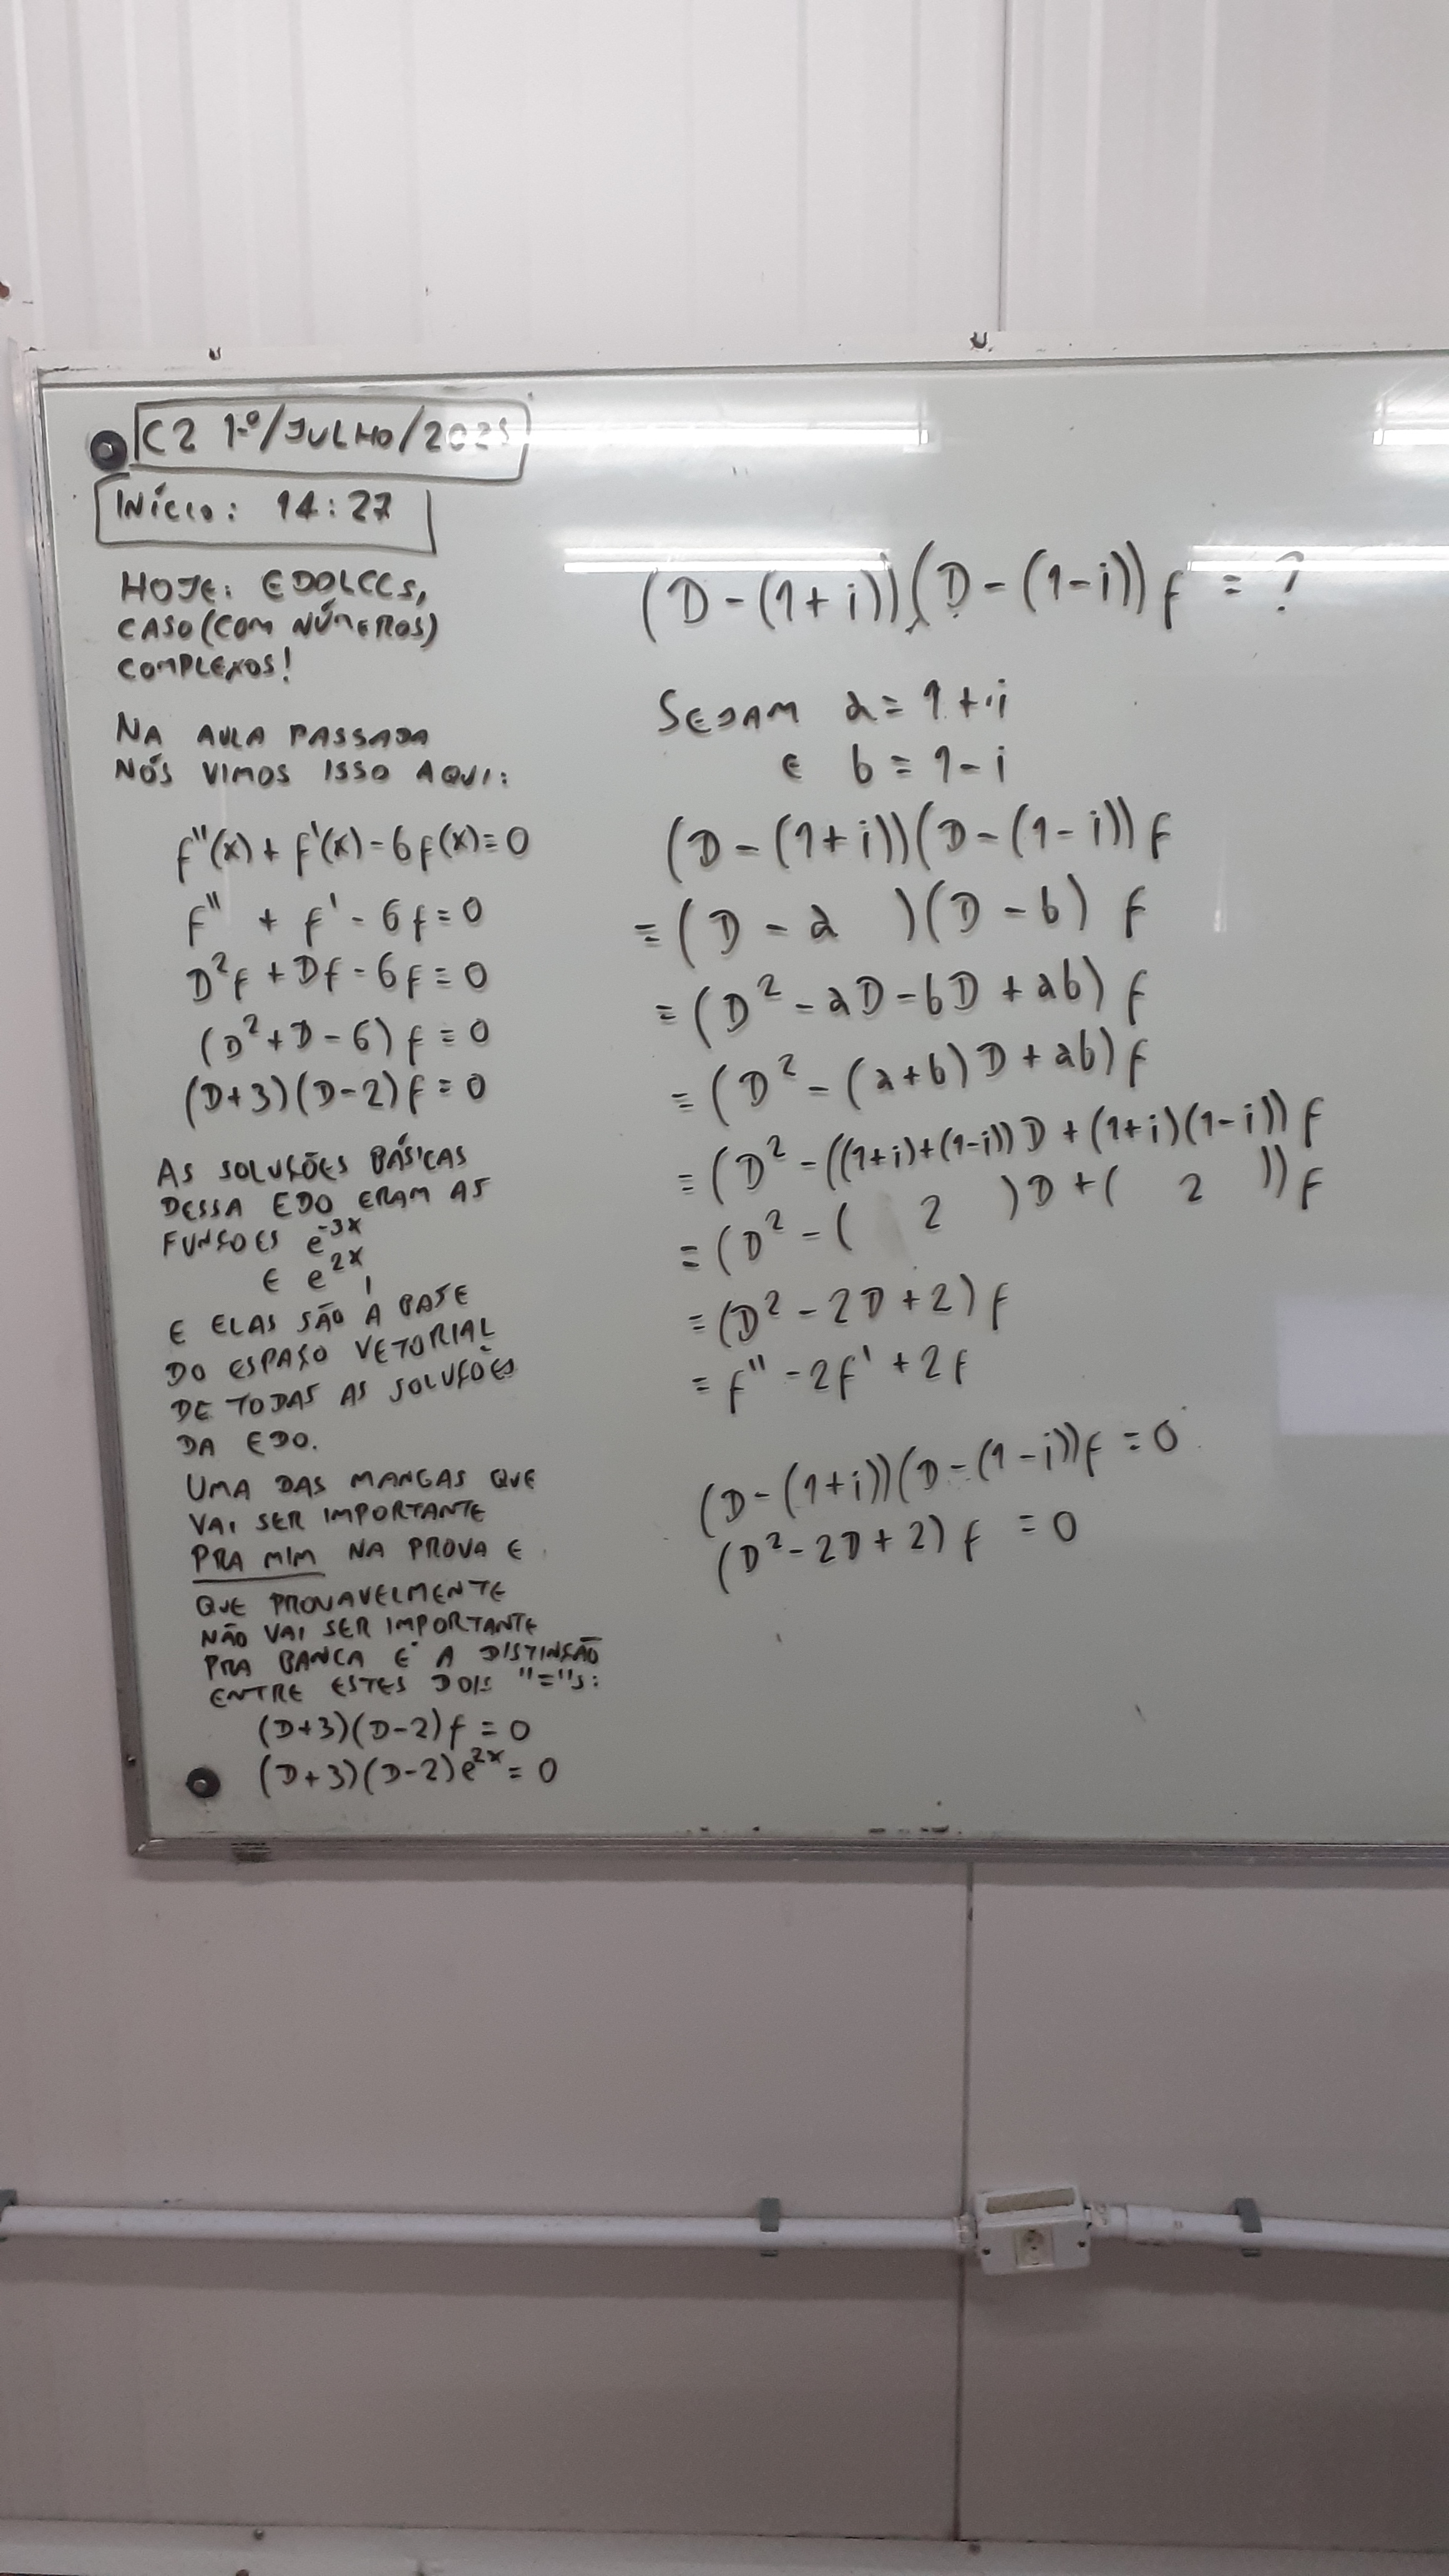 C2 1º/JULHO/2025
INÍCIO: 14:27
HOJE: EDOLCCS,
CASO (COM NÚMEROS)
COMPLEXOS!
NA AULA PASSADA
NÓS VIMOS ISSO AQUI:
f''(x) + f'(x) - 6f(x) = 0
f'' + f' - 6f = 0
D²f + Df - 6f = 0
(D² + D - 6) f = 0
(D+3)(D-2) f = 0
AS SOLUÇÕES BÁSICAS
DESSA EDO ERAM AS
FUNÇOES e⁻³ˣ
E e²ˣ,
E ELAS SÃO A BASE
DO ESPAÇO VETORIAL
DE TODAS AS SOLUÇÕES
DA EDO.
UMA DAS MANGAS QUE
VAI SER IMPORTANTE
PRA MIM NA PROVA E
QUE PROVAVELMENTE
NÃO VAI SER IMPORTANTE
PRA BANCA É A DISTINÇÃO
ENTRE ESTES DOIS "="s:
(D+3)(D-2) f = 0
(D+3)(D-2) e²ˣ = 0
(D - (1+i))(D - (1-i)) f = ?
SEJAM a = 1+i
E b = 1-i
(D - (1+i))(D - (1-i)) f
= (D - a )(D - b) f
= (D² - aD - bD + ab) f
= (D² - (a+b)D + ab) f
= (D² - ((1+i)+(1-i))D + (1+i)(1-i)) f
= (D² - ( 2 )D + ( 2 )) f
= (D² - 2D + 2) f
= f'' - 2f' + 2f
(D - (1+i))(D - (1-i)) f = 0
(D² - 2D + 2) f = 0